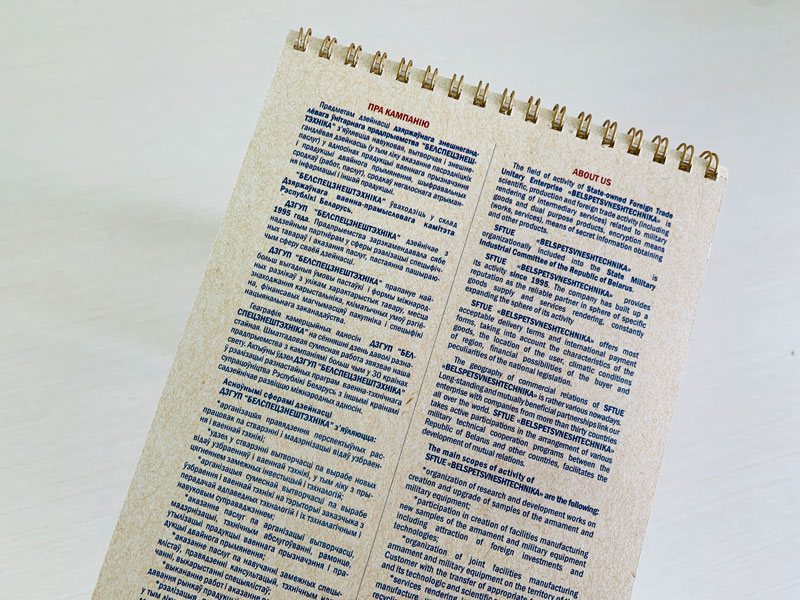 ПРА КАМПАНІЮ
Прадметам дзейнасці дзяржаўнага знешнеганд-
лёвага ўнітарнага прадпрыемства "БЕЛСПЕЦЗНЕШ-
ТЭХНІКА" з'яўляецца навуковая, вытворчая і знешне-
гандлёвая дзейнасць (у тым ліку аказанне пасрэдніцкіх
паслуг) у адносінах прадукцыі ваеннага прызначэння
і прадукцыі двайнога прымянення, шыфравальных
сродкаў (работ, паслуг), сродкаў негалоснага атрыман-
ня інфармацыі і іншай прадукцыі.
"БЕЛСПЕЦЗНЕШТЭХНІКА" ўваходзіць у склад
Дзяржаўнага ваенна-прамысловага камітэта
Рэспублікі Беларусь.
ДЗГУП "БЕЛСПЕЦЗНЕШТЭХНІКА" дзейнічае з
1995 года. Прадпрыемства зарэкамендавала сябе
надзейным партнёрам у сферы рэалізацыі спецыфіч-
ных тавараў і аказання паслуг, пастаянна пашыраю-
чым сферу сваёй дзейнасці.
ДЗГУП "БЕЛСПЕЦЗНЕШТЭХНІКА" прапануе най-
больш выгадныя ўмовы пастаўкі і формы міжнарод-
ных разлікаў з улікам характарыстык тавару, месца
знаходжання карыстальніка, кліматычных умоў рэгіё-
на, фінансавых магчымасцяў пакупніка і спецыфікі
нацыянальнага заканадаўства.
Геаграфія камерцыйных адносін ДЗГУП "БЕЛ-
СПЕЦЗНЕШТЭХНІКА" на сённяшні дзень даволі разна-
стайная. Шматгадовая сумесная работа звязвае наша
прадпрыемства з кампаніямі больш чым у 30 краінах
свету. Актыўны ўдзел ДЗГУП "БЕЛСПЕЦЗНЕШТЭХНІКА"
у рэалізацыі разнастайных праграм ваенна-тэхнічнага
супрацоўніцтва Рэспублікі Беларусь з іншымі краінамі
садзейнічае развіццю міжнародных адносін.
Асноўнымі сферамі дзейнасці
ДЗГУП "БЕЛСПЕЦЗНЕШТЭХНІКА" з'яўляюцца:
*арганізацыя правядзення перспектыўных рас-
працовак па стварэнні і мадэрнізацыі відаў узбраен-
ня і ваеннай тэхнікі;
*удзел у стварэнні вытворчасці па вырабе новых
відаў узбраенняў і ваеннай тэхнікі, у тым ліку з пры-
цягненнем замежных інвестыцый і тэхналогій;
*арганізацыя сумеснай вытворчасці па вырабе
ўзбраення і ваеннай тэхнікі на тэрыторыі заказчыка з
перадачай адпаведных тэхналогій і іх тэхналагічным і
навуковым суправаджэннем;
*аказанне паслуг па арганізацыі вытворчасці,
мадэрнізацыі, тэхнічным абслугоўванні, рамонце,
утылізацыі прадукцыі ваеннага прызначэння і пра-
дукцыі двайнога прымянення;
*аказанне паслуг па навучанні замежных спецы-
ялістаў, правядзенні кансультацый, тэхнічным навуч-
чанні, выкарыстанні спецыялістаў;
*выкананне работ і аказанне
давання рынкаў прадукцыі
*рэалізацыя
у тым ліку
ABOUT US
The field of activity of State-owned Foreign Trade
Unitary Enterprise «BELSPETSVNESHTECHNIKA» is
scientific, production and foreign trade activity (including
rendering of intermediary services) related to military
goods and dual purpose products, encryption means
(works, services), means of secret information obtaining
and other products.
SFTUE «BELSPETSVNESHTECHNIKA» is
organizationally included into the State Military
Industrial Committee of the Republic of Belarus.
SFTUE «BELSPETSVNESHTECHNIKA» provides
its activity since 1995. The company has built up a
reputation as the reliable partner in sphere of specific
goods supply and services rendering, constantly
expanding the sphere of its activity.
SFTUE «BELSPETSVNESHTECHNIKA» offers most
acceptable delivery terms and international payment
forms, taking into account the characteristics of the
goods, the location of the user, climatic conditions
of region, financial capabilities of the buyer and
peculiarities of national legislation.
The geography of commercial relations of SFTUE
«BELSPETSVNESHTECHNIKA» is rather various nowadays.
Long-standing and mutually beneficial partnerships link our
enterprise with companies from more than thirty countries
all over the world. SFTUE «BELSPETSVNESHTECHNIKA»
takes active participations in the arrangement of various
military technical cooperation programs between the
Republic of Belarus and other countries, facilitates the
development of mutual relations.
The main scopes of activity of
SFTUE «BELSPETSVNESHTECHNIKA» are the following:
*organization of research and development works on
creation and upgrade of samples of the armament and
military equipment;
*participation in creation of facilities manufacturing
new samples of the armament and military equipment
including attraction of foreign investments and
technologies;
*organization of joint facilities manufacturing
armament and military equipment on the territory of the
Customer with the transfer of appropriate
and its technologic and scientific
*services rendering
manufacture,